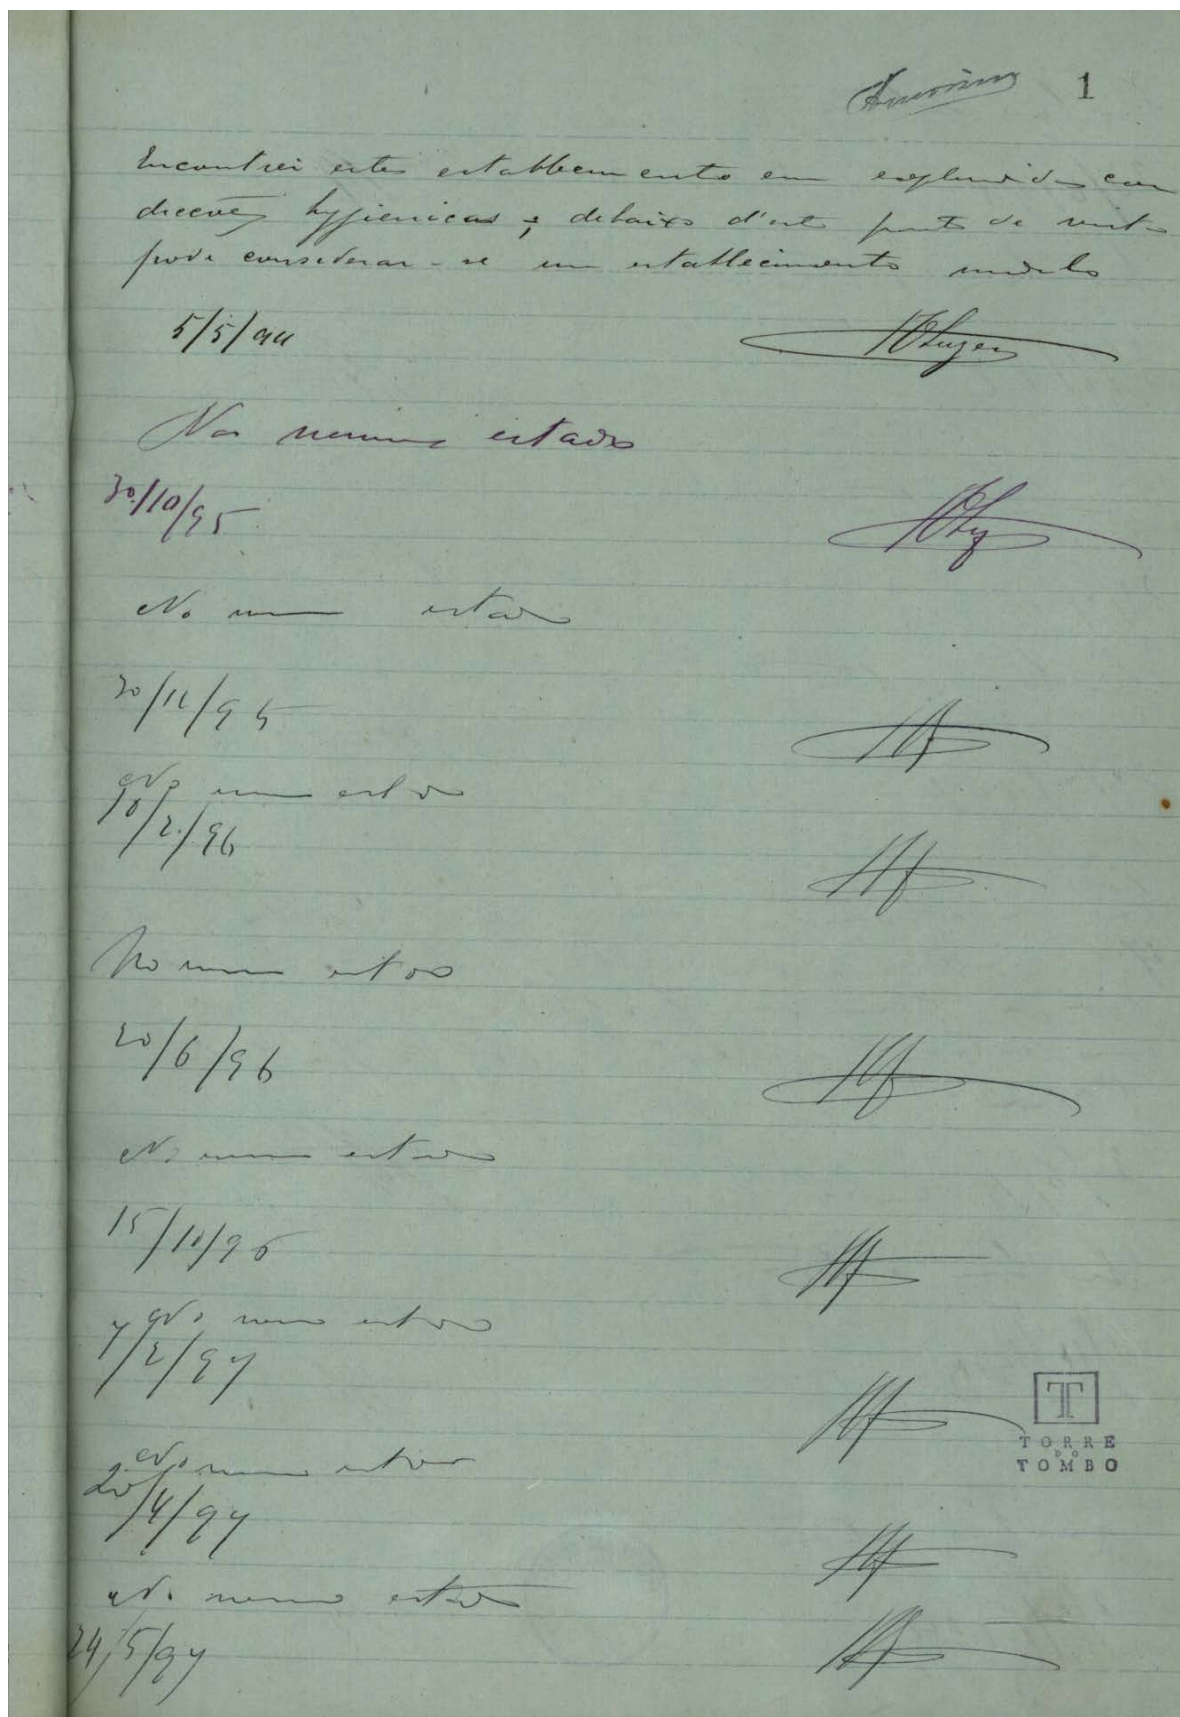 1
Encontrei este estabelecimento em esplendidas con
dicções hygienicas; debaixo d'este ponto de vista
pode considerar-se um estabelecimento modelo
5/5/94
No mesmo estado
30/10/95
No mesmo estado
20/11/95
No mesmo estado
10/2/96
No mesmo estado
20/6/96
No mesmo estado
15/10/96
No mesmo estado
7/2/97
No mesmo estado
20/4/97
No mesmo estado
24/5/97
T
TORRE
DO
TOMBO